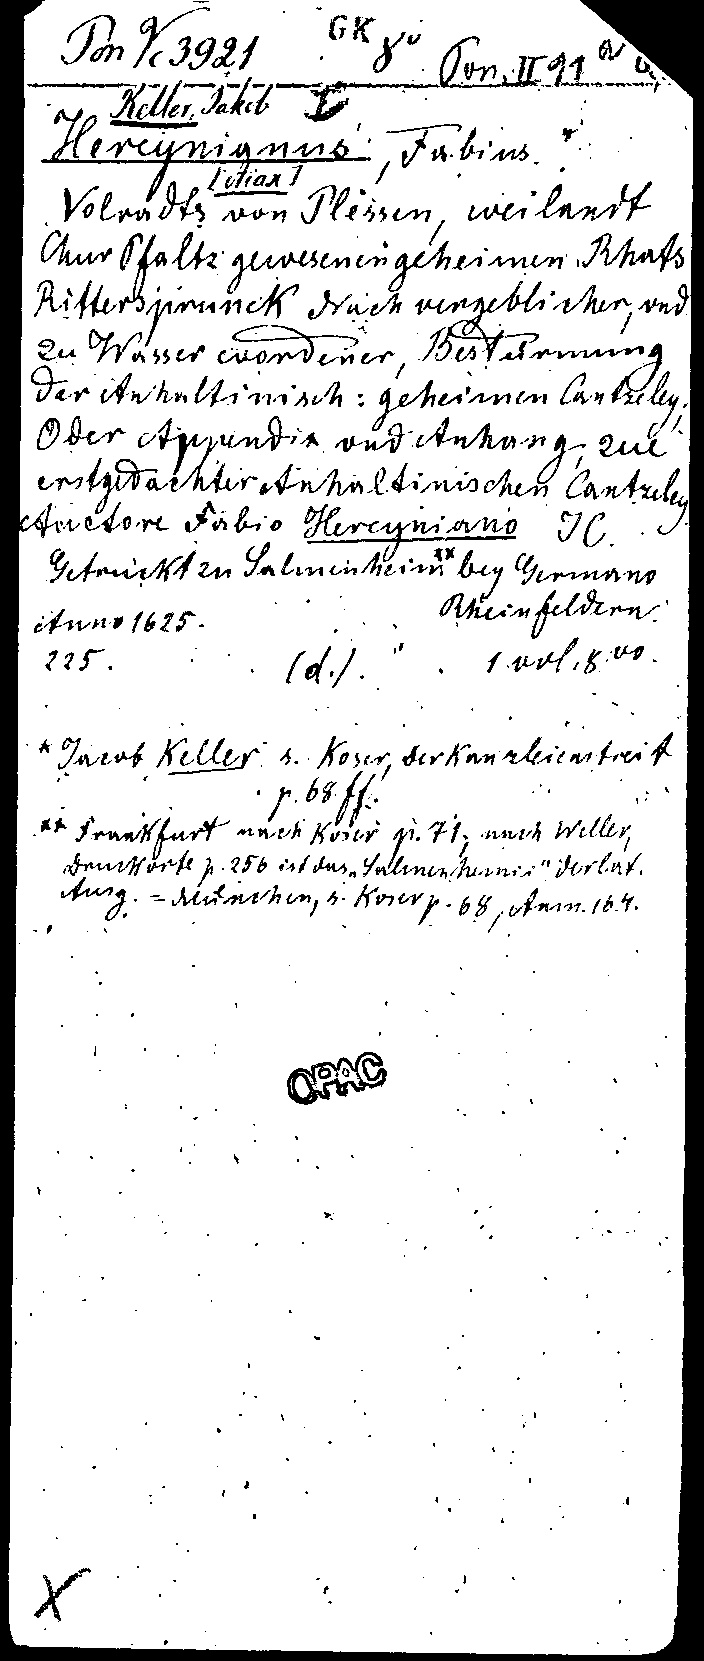 Pon Vc 3921 GK 8° Pon. II 91
Keller, Jakob
Hercynianus, Fabius. *
Volradts von Plessen, weilandt
Chur Pfaltz gewesenen geheimen Rhats
Rittersprunck Nach vergeblicher, vnd
zu Wasser wordener, Bestürmung
der Anhaltinisch: geheimen Cantzeley,
Oder Appendix vnd Anhang, zue
erstgedachter Anhaltinischen Cantzeley
Auctore Fabio Hercyniano JC.
Getruckt zu Salmenheim ** bey Germano
Rheinfeldern.
Anno 1625.
225. (d.). 1 vol. 8.vo.
* Jacob Keller s. Koser, der Kanzleienstreit
p. 68 ff.
** Frankfurt nach Koser p. 71; nach Weller,
Druckorte p. 256 ist das „Salmenhemii" der lat.
Ausg. = München, s. Koser p. 68, Anm. 164.
OPAC
X